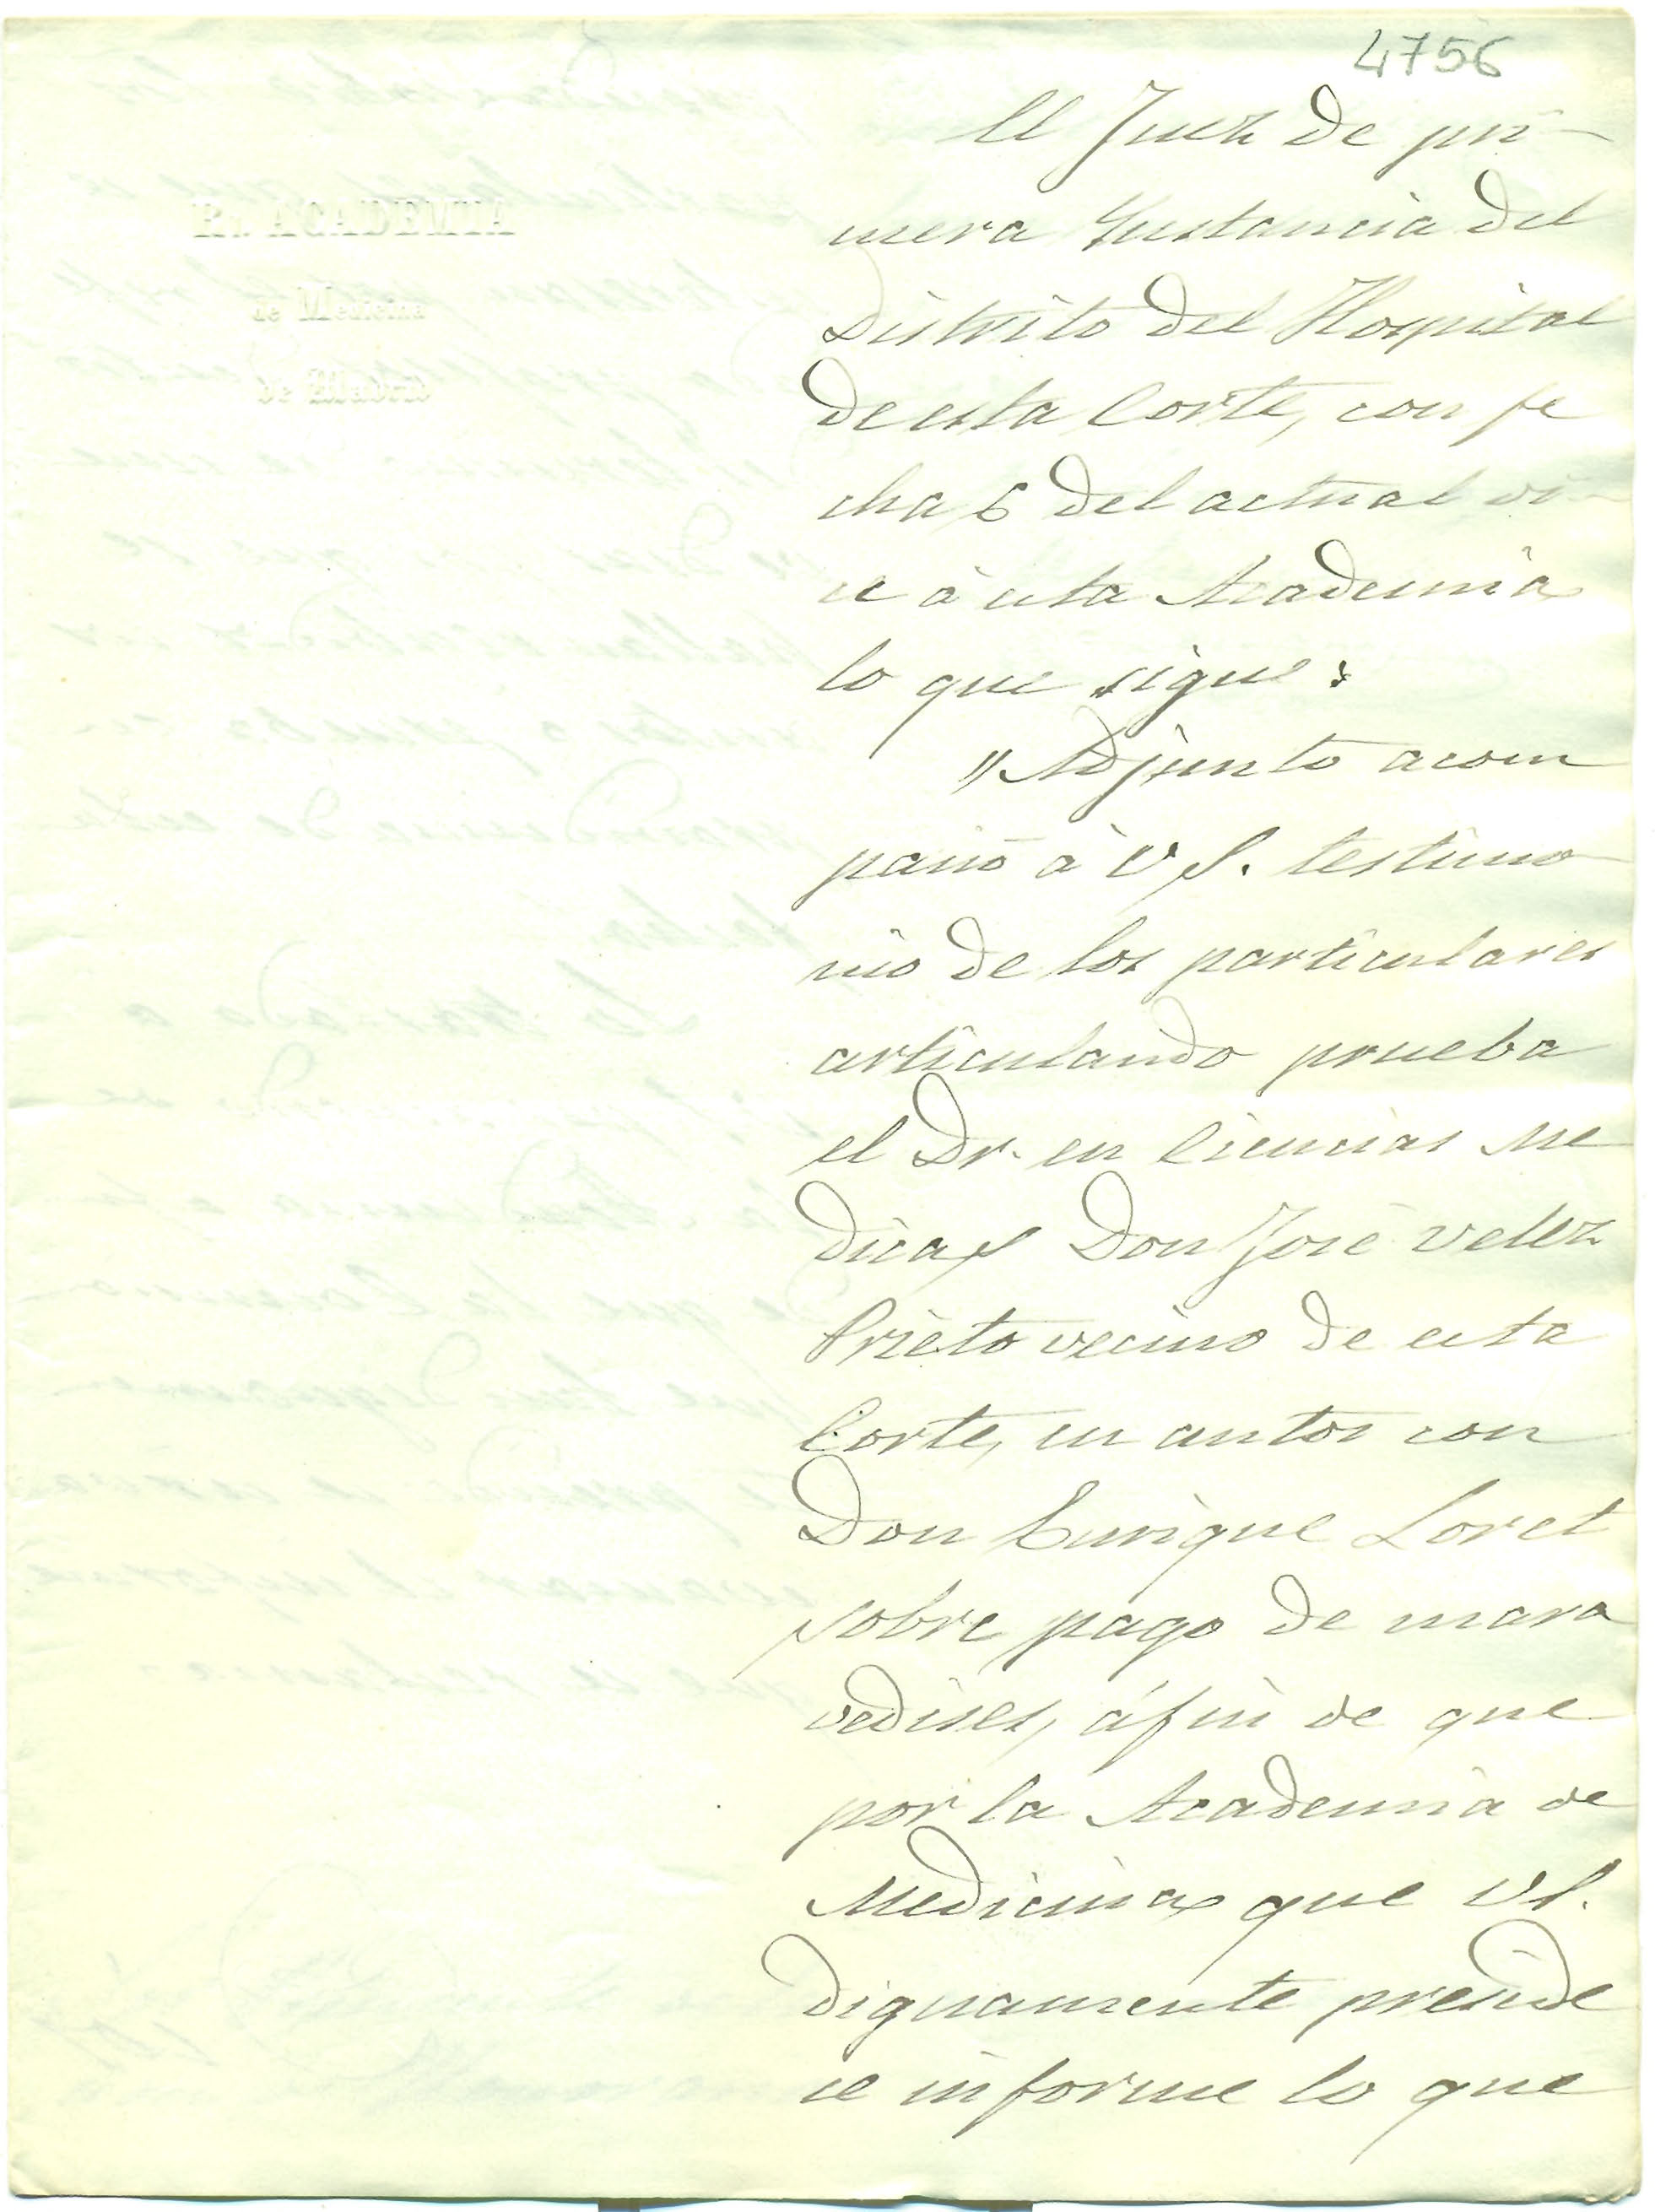 4756
R. ACADEMIA
de Medicina
de Madrid
El Juez de pri-
mera Instancia del
Distrito del Hospital
de esta Corte, con fe
cha 6 del actual di-
ce á esta Academia
lo que sigue:
"Adjunto acom
paño á V S. testimo
nio de los particulares
articulando prueba
el Dr. en Ciencias Me
dicas Don José Velez
Prieto vecino de esta
Corte, en autos con
Don Enrique Loret
sobre pago de mara
vedises, áfin de que
por la Academia de
Medicina que V S.
dignamente preside
se informe lo que